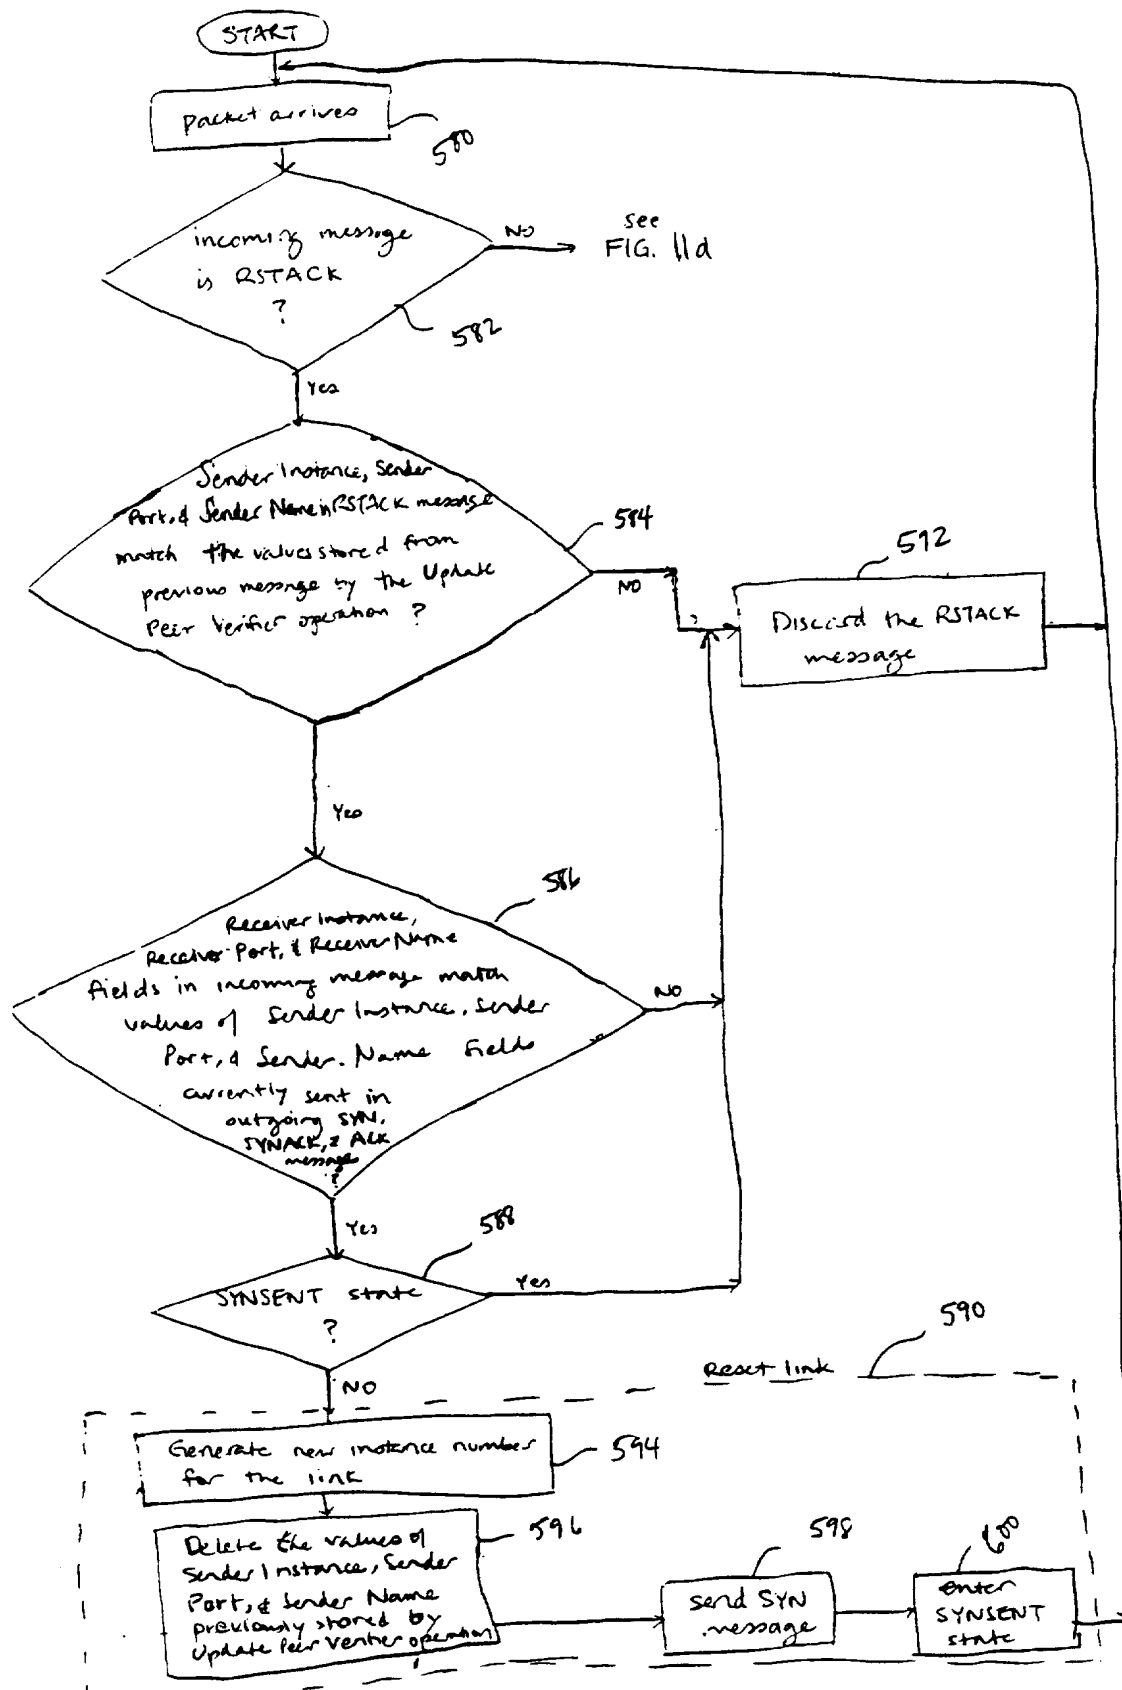 START
packet arrives
580
incoming message
is RSTACK
?
NO
see
FIG. 11d
582
Yes
Sender Instance, Sender
Port, & Sender Name in RSTACK message
match the values stored from
previous message by the Update
Peer Verifier operation ?
584
NO
592
Discard the RSTACK
message
Yes
586
Receiver Instance,
Receiver Port, & Receiver Name
fields in incoming message match
values of Sender Instance, Sender
Port, & Sender Name fields
currently sent in
outgoing SYN,
SYNACK, & ACK
message
?
NO
Yes
588
SYNSENT state
?
Yes
NO
590
Reset link
Generate new instance number
for the link
594
Delete the values of
Sender Instance, Sender
Port, & Sender Name
previously stored by
Update Peer Verifier operation
596
598
send SYN
message
600
enter
SYNSENT
state